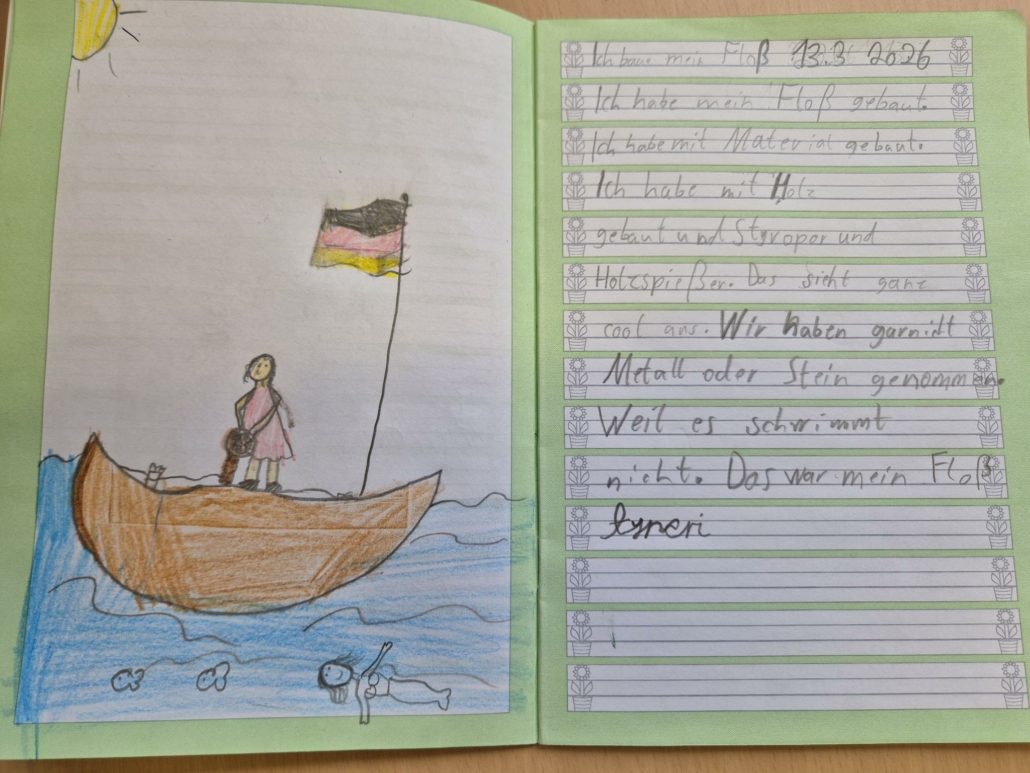 Ich baue mein Floß 13.3 2026
Ich habe mein Floß gebaut.
Ich habe mit Material gebaut.
Ich habe mit Holz
gebaut und Styropor und
Holzspießer. Das sieht ganz
cool aus. Wir haben garnicht
Metall oder Stein genommen.
Weil es schwimmt
nicht. Das war mein Floß